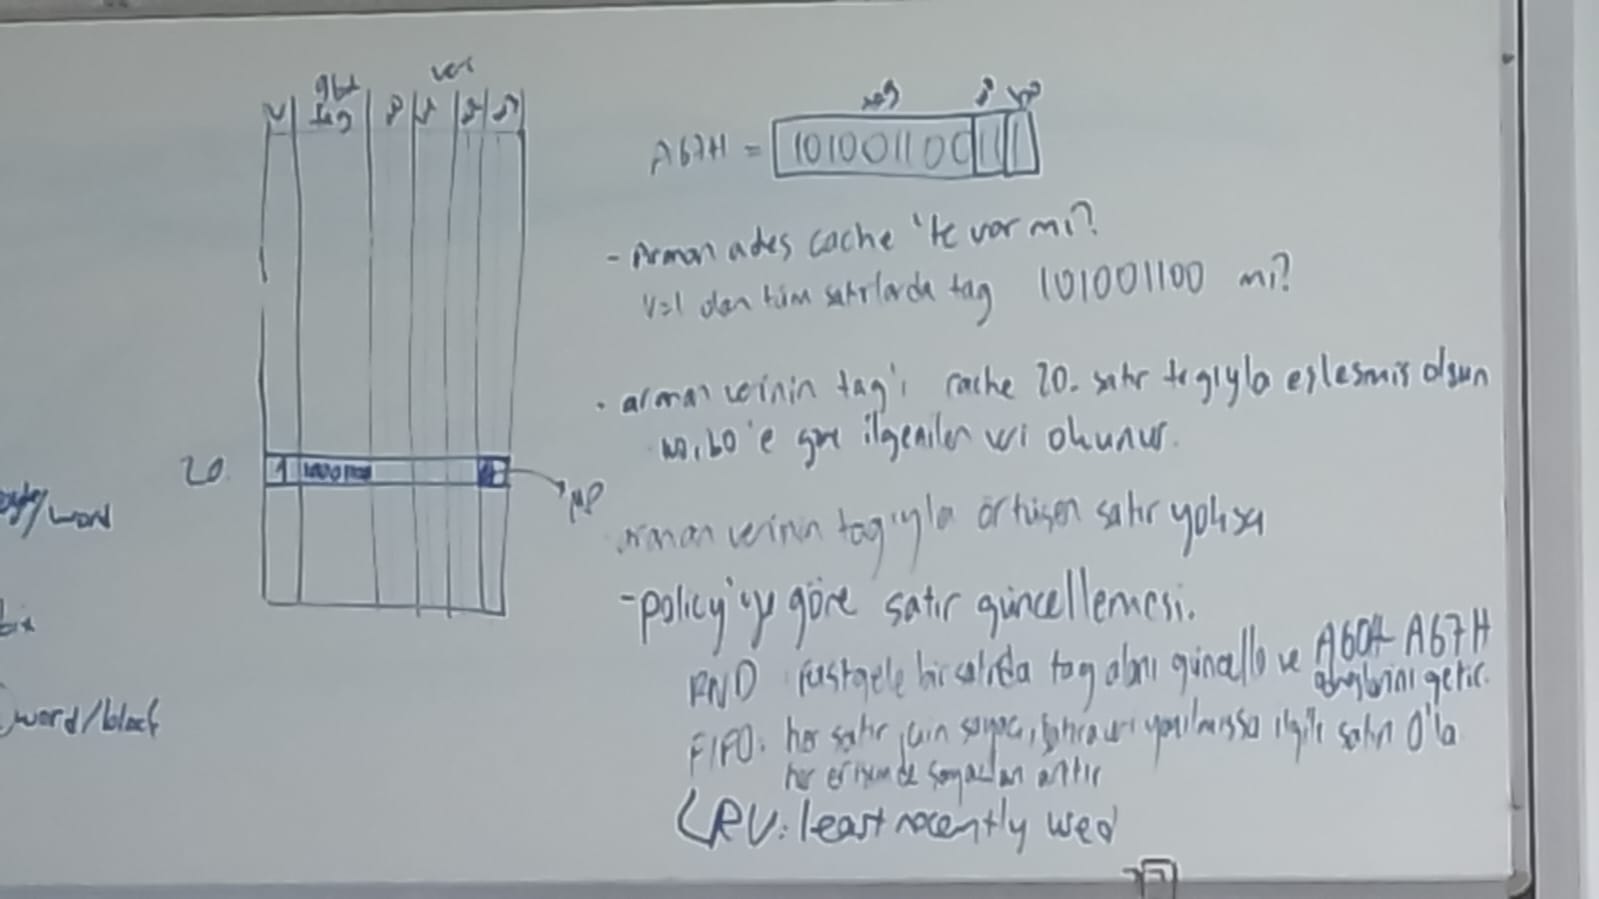 veri
V
9bit
tag
20.
1
MP
/word
word/block
tag
A67H = 101001100 11 1
- Aranan adres cache'te var mı?
V=1 olan tüm satırlarda tag 101001100 mı?
. aranan verinin tag'ı cache 20. satır tagıyla eşleşmiş olsun
w0,b0'e göre ilgenilen veri okunur.
. aranan verinin tag'ıyla örtüşen satır yoksa
- policy'ye göre satır güncellemesi.
RND rastgele bir satırda tag alanı güncelle ve A60H A67H
getir.
FIFO: her satır için sayaç, yazılmışsa ilgili satırı 0'la
her erişimde sayaçları arttır
LRU: least recently used